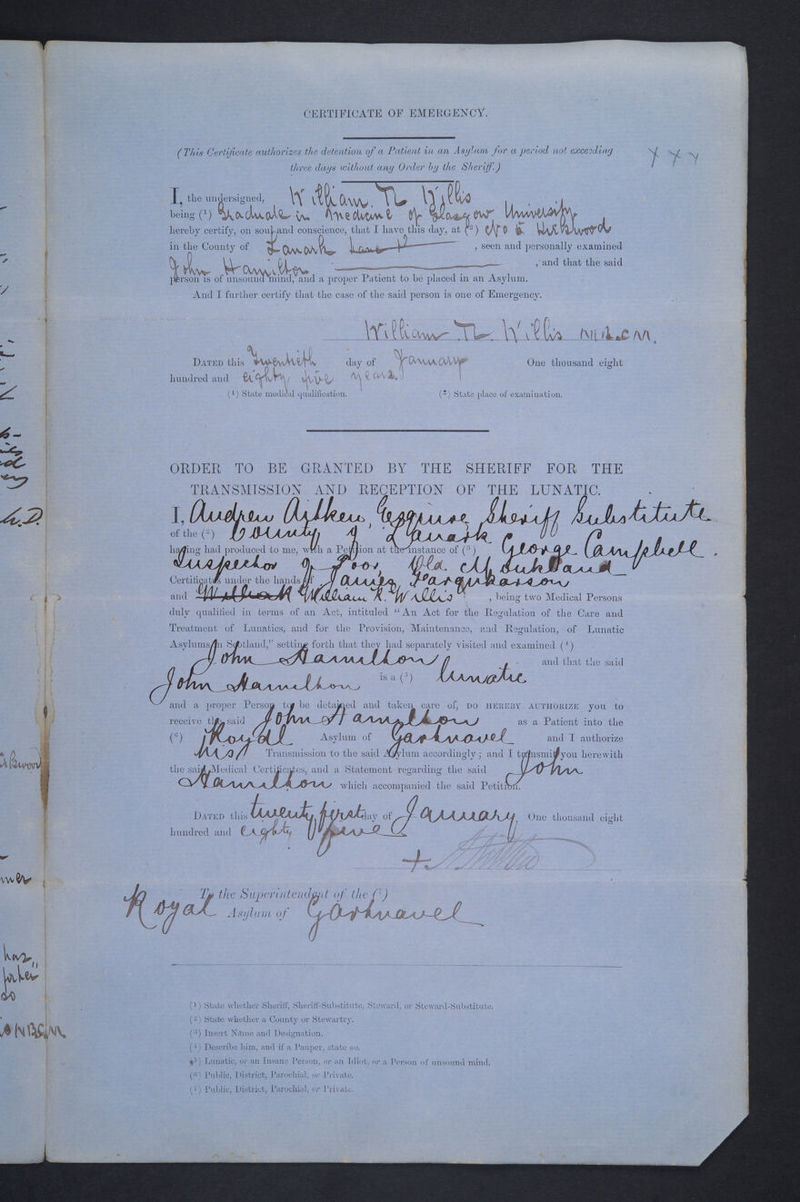 CERTIFICATE OF EMERGENCY.
(This Certificate authorizes the detention of a Patient in an Asylum for a period not exceeding
three days without any Order by the Sheriff.)
I, the undersigned, William Willis
being (¹) Graduate in Medicine of Glasgow University
hereby certify, on soul and conscience, that I have this day, at (²)
in the County of Lanark , seen and personally examined
John Hamilton , and that the said
person is of unsound mind, and a proper Patient to be placed in an Asylum.
And I further certify that the case of the said person is one of Emergency.
William Willis M.B. C.M.
DATED this Twentieth day of January One thousand eight
hundred and eighty five years.
(¹) State medical qualification. (²) State place of examination.
ORDER TO BE GRANTED BY THE SHERIFF FOR THE
TRANSMISSION AND RECEPTION OF THE LUNATIC.
I, Andrew Aitken, Esquire, Sheriff Substitute
of the (²) County of Lanark
having had produced to me, with a Petition at the instance of (³) George Campbell.
Inspector of Poor,
Certificates under the hands of James Farquharson
and William Willis , being two Medical Persons
duly qualified in terms of an Act, intituled “An Act for the Regulation of the Care and
Treatment of Lunatics, and for the Provision, Maintenance, and Regulation, of Lunatic
Asylums in Scotland,” setting forth that they had separately visited and examined (⁴)
John Hamilton and that the said
John Hamilton is a (⁵) Lunatic
and a proper Person to be detained and taken care of, DO HEREBY AUTHORIZE you to
receive the said John Hamilton as a Patient into the
(⁶) Royal Asylum of Gartnavel and I authorize
his Transmission to the said Asylum accordingly; and I transmit you herewith
the said Medical Certificates, and a Statement regarding the said John
Hamilton which accompanied the said Petition.
DATED this twenty first day of January One thousand eight
hundred and eighty five
To the Superintendent of the (⁷)
Royal Asylum of Gartnavel
(¹) State whether Sheriff, Sheriff-Substitute, Steward, or Steward-Substitute.
(²) State whether a County or Stewartry.
(³) Insert Name and Designation.
(⁴) Describe him, and if a Pauper, state so.
(⁵) Lunatic, or an Insane Person, or an Idiot, or a Person of unsound mind.
(⁶) Public, District, Parochial, or Private.
(⁷) Public, District, Parochial, or Private.